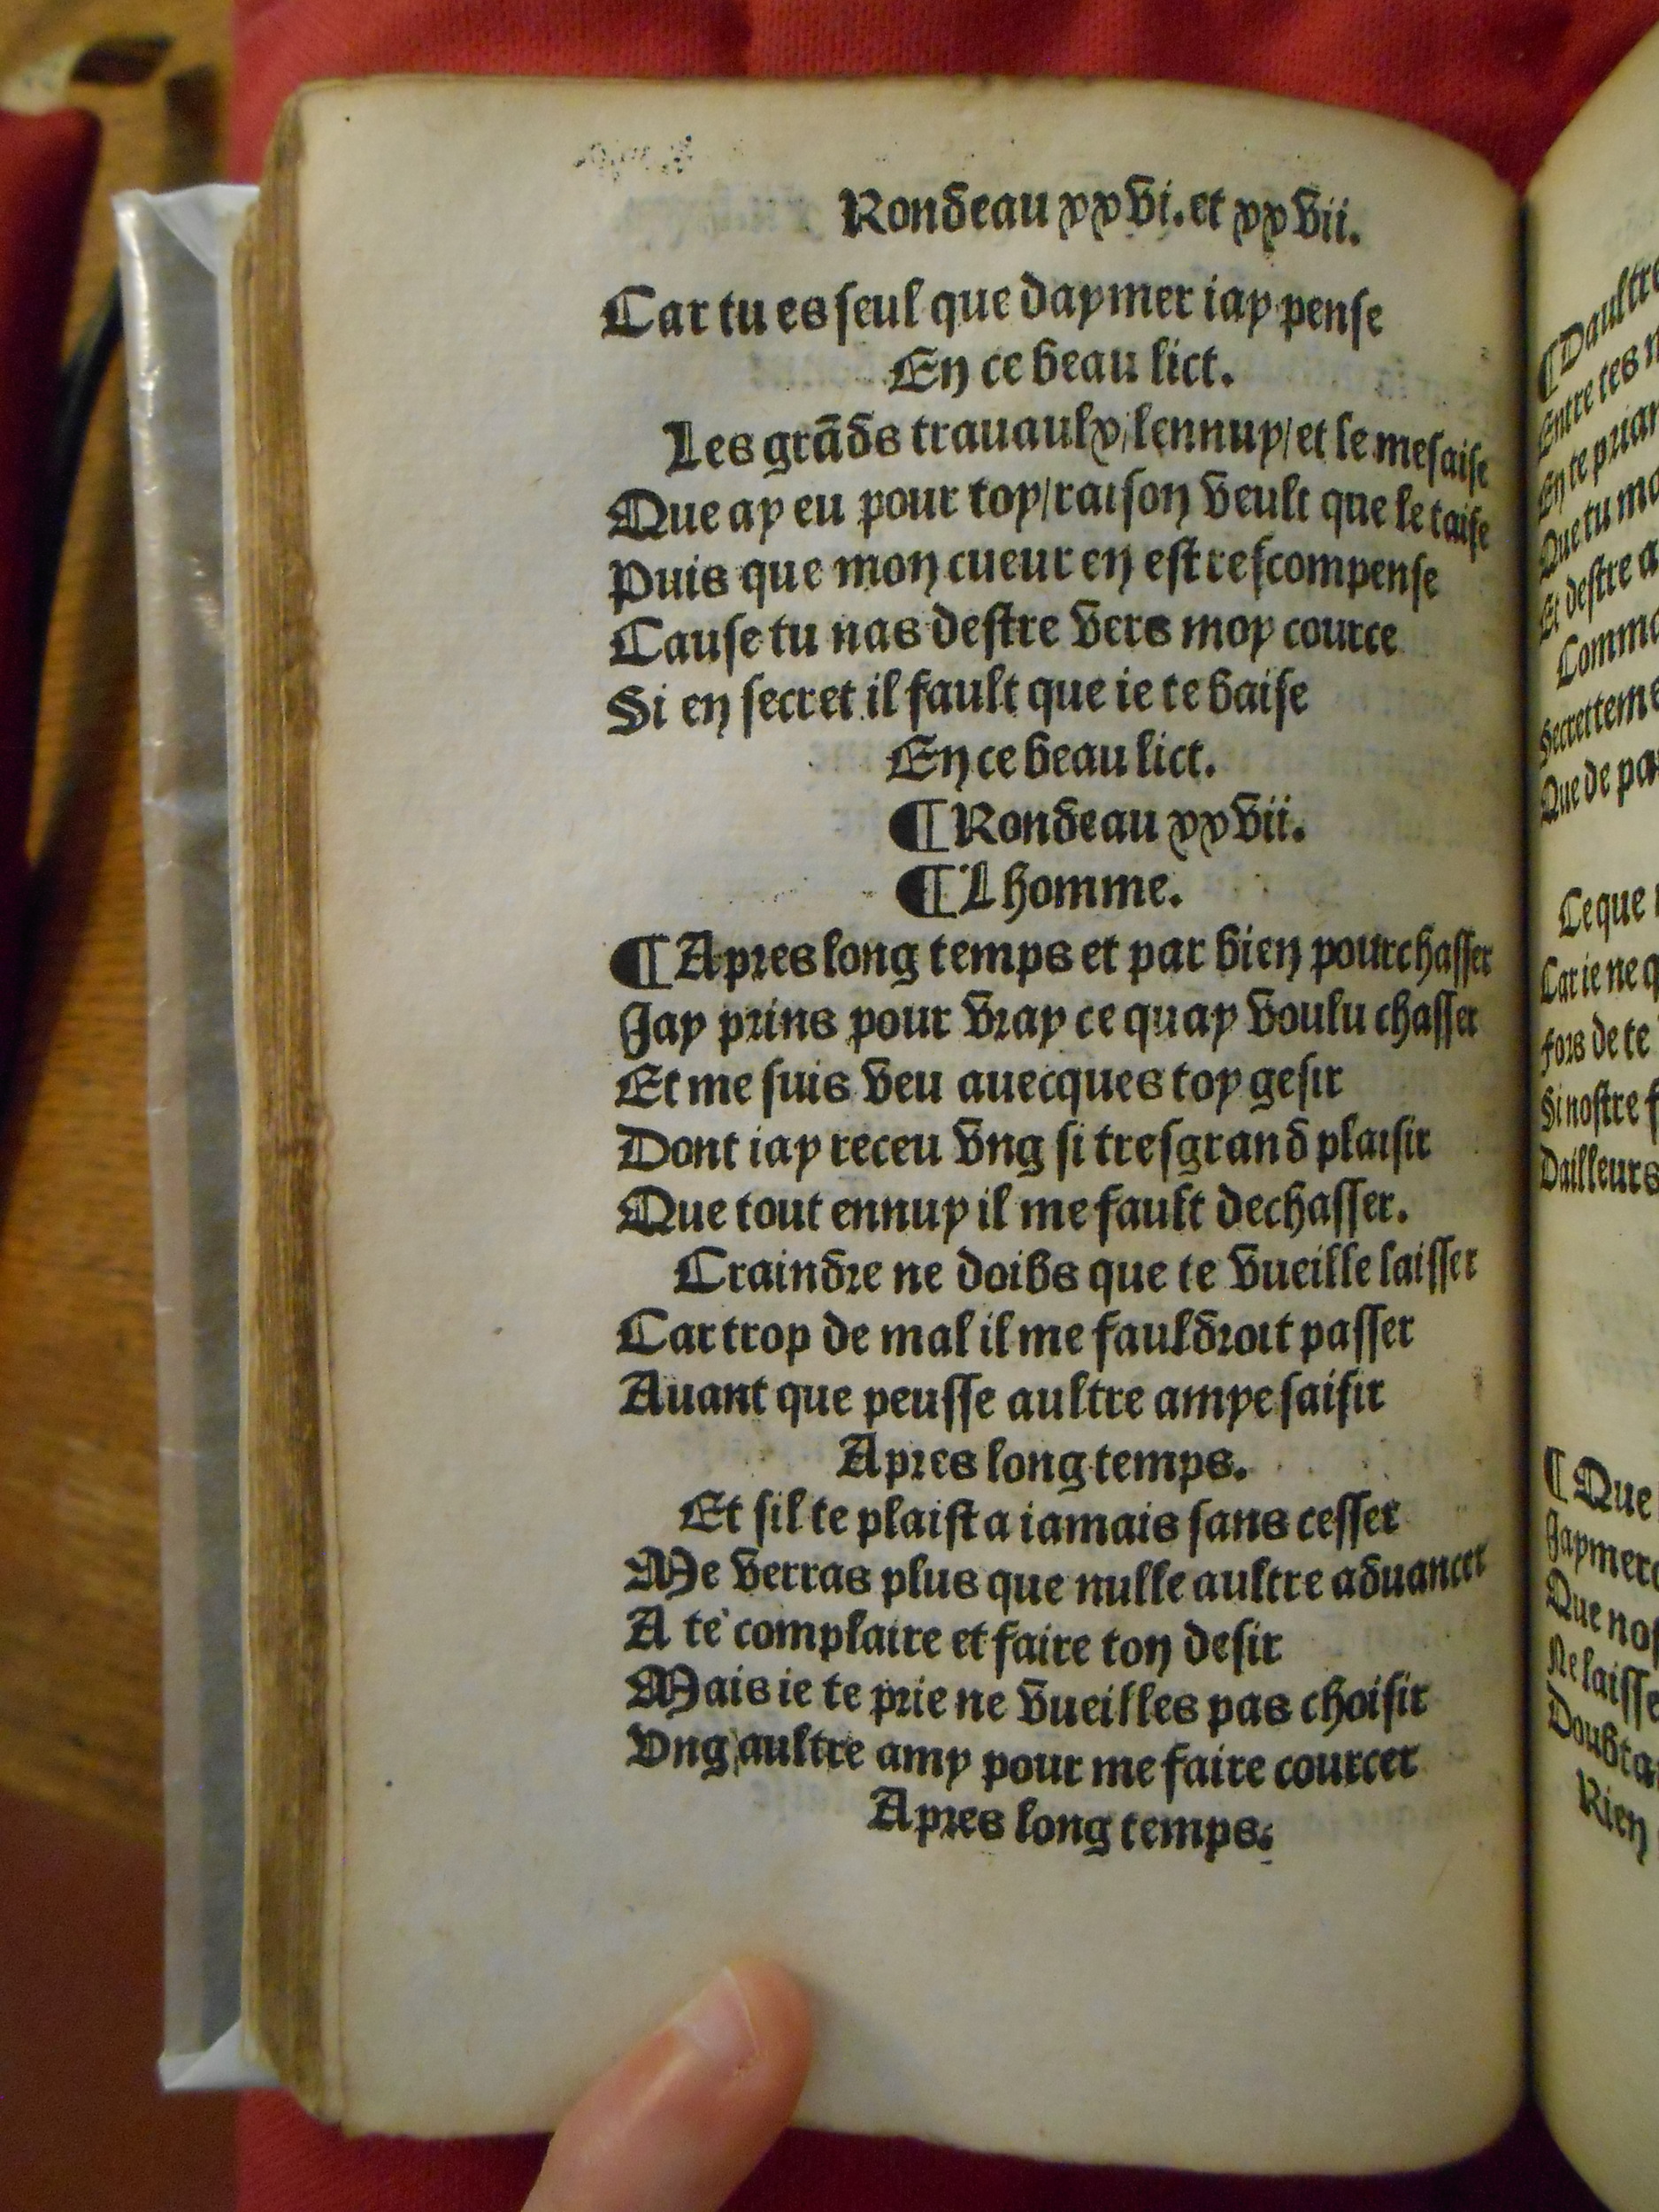 Rondeau xxvi. et xxvii.
Car tu es seul que daymer iay pense
En ce beau lict.
Les grãds trauaulx/lennuy/et le mesaise
Que ay eu pour toy/raison veult que le taise
Puis que mon cueur en est rescompense
Cause tu nas destre vers moy cource
Si en secret il fault que ie te baise
En ce beau lict.
¶Rondeau xxvii.
¶Lhomme.
¶Apres long temps et par bien pourchasser
Jay prins pour vray ce quay voulu chasser
Et me suis veu auecques toy gesir
Dont iay receu vng si tresgrand plaisir
Que tout ennuy il me fault dechasser.
Craindre ne doibs que te vueille laisser
Car trop de mal il me fauldroit passer
Auant que peusse aultre amye saisir
Apres long temps.
Et sil te plaist a iamais sans cesser
Me verras plus que nulle aultre aduancer
A te complaire et faire ton desir
Mais ie te prie ne vueilles pas choisir
Vng aultre amy pour me faire courcer
Apres long temps.
¶Daultre
Entre tes
Que tu
Et destre
Ce que
Car ie ne
Fors de te
Si nostre
Dailleurs
¶Que
Que
Rien